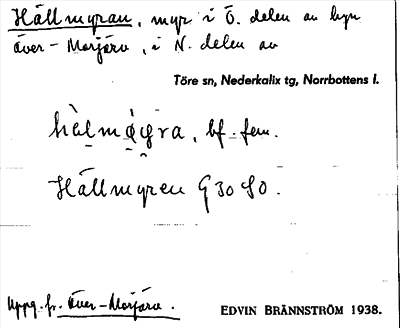 Hällmyran, myr i Ö. delen av byn
Över-Morjärv, i N. delen av
Töre sn, Nederkalix tg, Norrbottens l.
bf. fem.
Hällmyren G 30 SO.
Uppg. fr. Över-Morjärv.
EDVIN BRÄNNSTRÖM 1938.